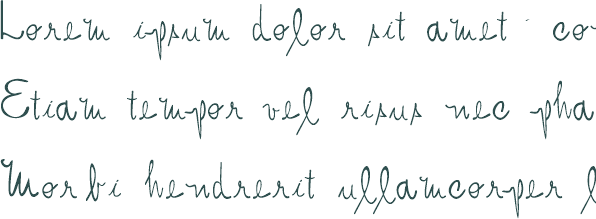 Lorem ipsum dolor sit amet co
Etiam tempor vel risus nec pha
Morbi hendrerit ullamcorper l